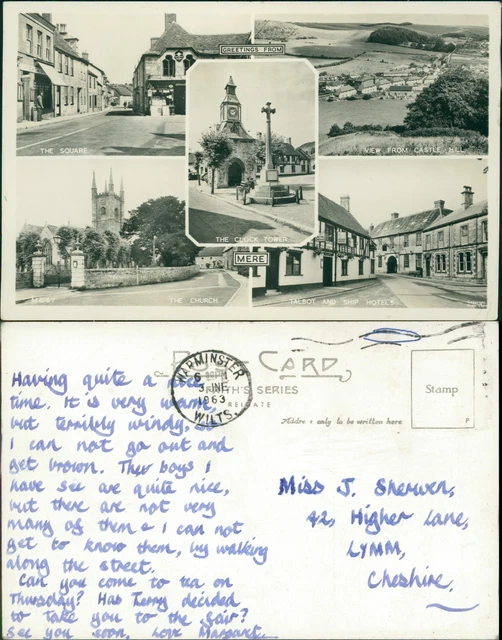 GREETINGS FROM
THE SQUARE
VIEW FROM CASTLE HILL
THE CLOCK TOWER
MERE
THE CHURCH
TALBOT AND SHIP HOTELS
POST CARD
FRITH'S SERIES
REIGATE
WARMINSTER
3 JNE
1963
WILTS.
Address only to be written here
Stamp
P
Having quite a nice
time. It is very warm
but terribly windy, so
I can not go out and
get brown. The boys I
have see are quite nice,
but there are not very
many of them & I can not
get to know them, by walking
along the street.
Can you come to tea on
Thursday? Has Terry decided
to take you to the fair?
See you soon, Love Margaret
Miss J. Sherwen,
42, Higher Lane,
LYMM,
Cheshire,